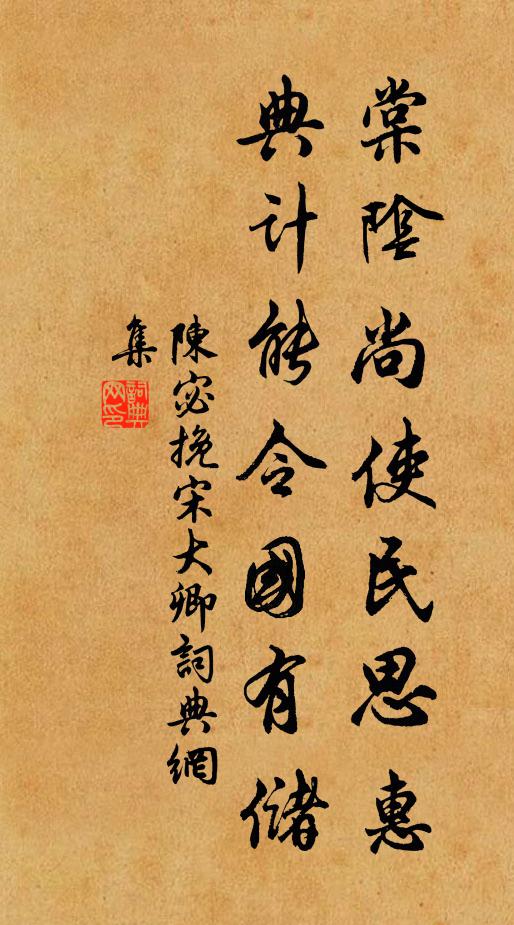 棠陰尚使民思惠
典計能令國有儲
陳宓挽宋大卿詞典網
集
詞典網印